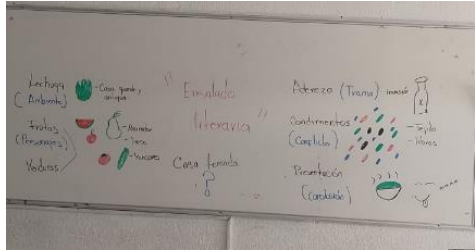 Lechuga
(Ambiente)
- Casa grande y
antigua
Frutas
(Personajes)
Verduras
- Narrador
- Irene
"Ensalada
literaria"
Casa Tomada
?
Aderezo (Trama)
Condimentos
(Conflicto)
- Tejido
- libros
Presentación
(Conclusión)